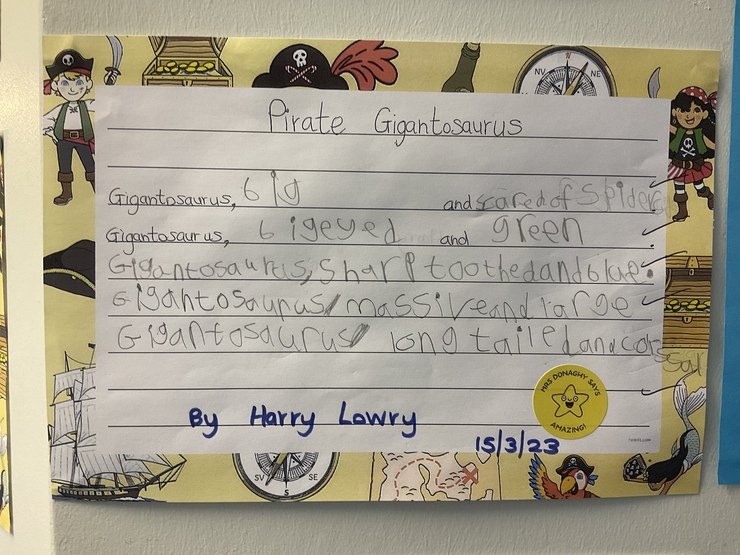 NV
NE
Pirate Gigantosaurus
Gigantosaurus, big and scared of spiders
Gigantosaurus, bigeyed and green
Gigantosaurus, sharp toothed and blue.
Gigantosaurus, massive and large
Gigantosaurus, long tailed and
MRS DONAGHY SAYS
AMAZING!
By Harry Lowry
15/3/23
SV
S
SE